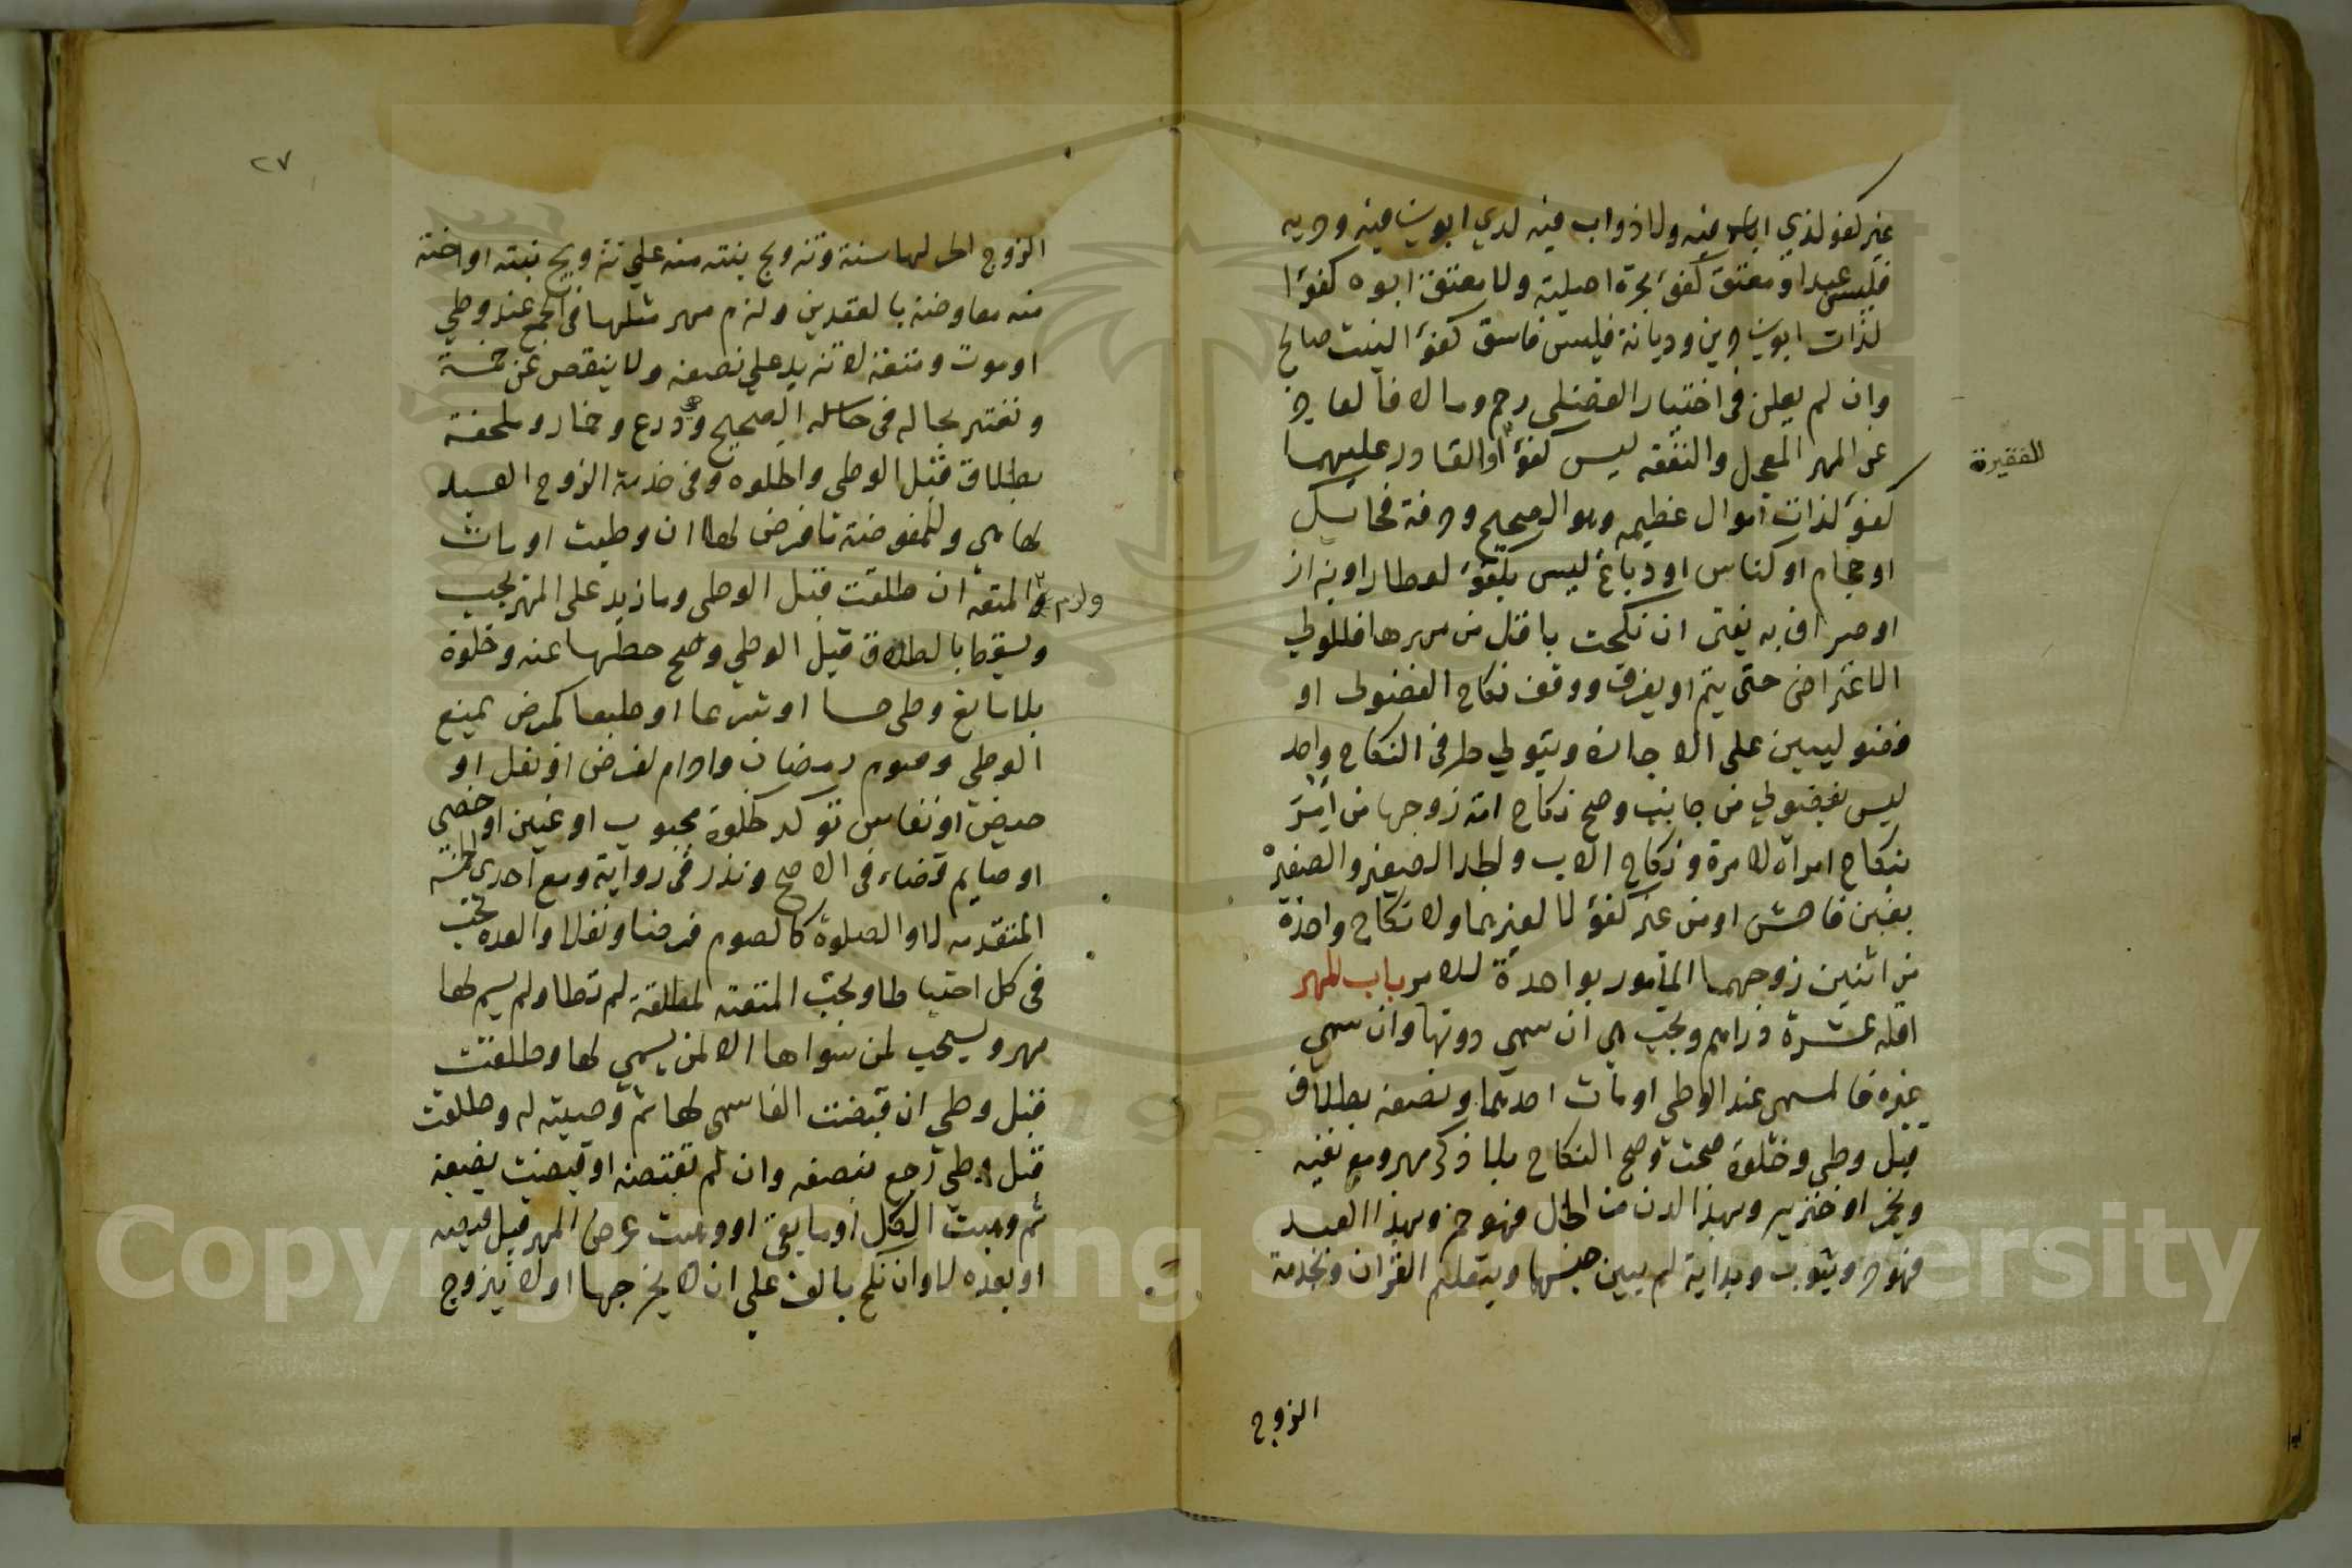 غير كفو لذي اباء فيه ولا ذو اب فيه لذي ابوين فيه وحريه
فليس عبد او معتق كفؤ لحرة اصلية ولا معتق ابوه كفوا
لذات ابوين حرين وديانة فليس فاسق كفؤ البنت صالح
وان لم يعلن في اختيار الفضلي رحم ومالا فالعاجز
عن المهر المعجل والنفقه ليس كفؤا والقادر عليهما
للفقيرة
كفؤ لذات اموال عظيمه وهو الصحيح وحرفة فحايك
او حجام او كناس او دباغ ليس بكفؤ لعطار او بزاز
او صراف به يفتى ان نكحت باقل من مهرها فللولي
الاعتراض حتى يتم او يفرق ووقف نكاح الفضولى او
فضوليين على الاجازة ويتولي طرفي النكاح واحد
ليس بفضولي من جانب وصح نكاح امة زوجها من امر
بنكاح امراة لامرة ونكاح الاب والجد الصغير والصغيرة
بغبن فاحش او من غير كفؤ لا لغيرهما ولا نكاح واحدة
من اثنين زوجهما المأمور بواحدة للامر باب المهر
اقله عشرة دراهم وتجب هي ان سمي دونها وان سمي
غيره فالمسمى عند الوطى او مات احدهما ونصفه بطلاق
قبل وطي وخلوة صحت وصح النكاح بلا ذكر مهر ومع نفيه
وبخمر او خنزير وبهذا الدن من الخل فهو خمر وبهذا العبد
فهو حر وبثوب وبداية لم يبين جنسها وبتعليم القران وبخدمة
الزوج
٢٧
الزوج الحر لها سنة وتزويج بنته منه على تزويج بنته او اخته
منه معاوضة بالعقدين ولزم مهر مثلها في الجميع عند وطي
او موت ومتعة لا تزيد على نصفه ولا ينقص عن خمسة
وتعتبر بحاله في الصحيح وهي درع وخمار وملحفة
بطلاق قبل الوطى والخلوه وفي خدمة الزوج العبد
لها هي وللمفوضة ما فرض لها ان وطيت او مات
ولزم
والمتعه ان طلقت قبل الوطى وما زيد على المهر يجب
ويسقط بالطلاق قبل الوطي وصح حطها عنه وخلوة
بلا مانع وطى حسا او شرعا او طبعا كمرض يمنع
الوطي وصوم رمضان واحرام لفرض او نفل او
حيض او نفاس تؤكد كخلوة مجبوب او عنين او خصي
او صايم قضاء في الاصح ونذر في رواية ومع احدى الخمسة
المتقدمه لا والصلوة كالصوم فرضا ونفلا والعدة تجب
في كل احتياطا وتجب المتعة لمطلقة لم توطا ولم يسم لها
مهر ويستحب لمن سواها الا لمن يسمي لها وطلقت
قبل وطي ان قبضت الفا سمى لها ثم وهبته له وطلقت
قبل وطي رجع بنصفه وان لم تقبضه او قبضت نصفه
ثم وهبت الكل او ما بقي او وهبت عرض المهر قبل قبضه
او بعده لا وان نكح بالف على ان لا يخرجها او لا يتزوج